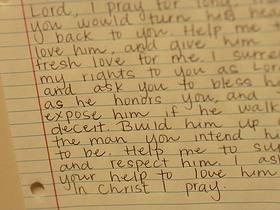 Lord, I pray for
you would turn his
back to you. Help me
love him, and give him
fresh love for me.
my rights to you as Lord
and ask you to bless h
as he honors you, and
expose him if he walk
deceit. Build him up
the man you intend h
to be. Help me to su
and respect him. I as
your help to love him
In Christ I pray.